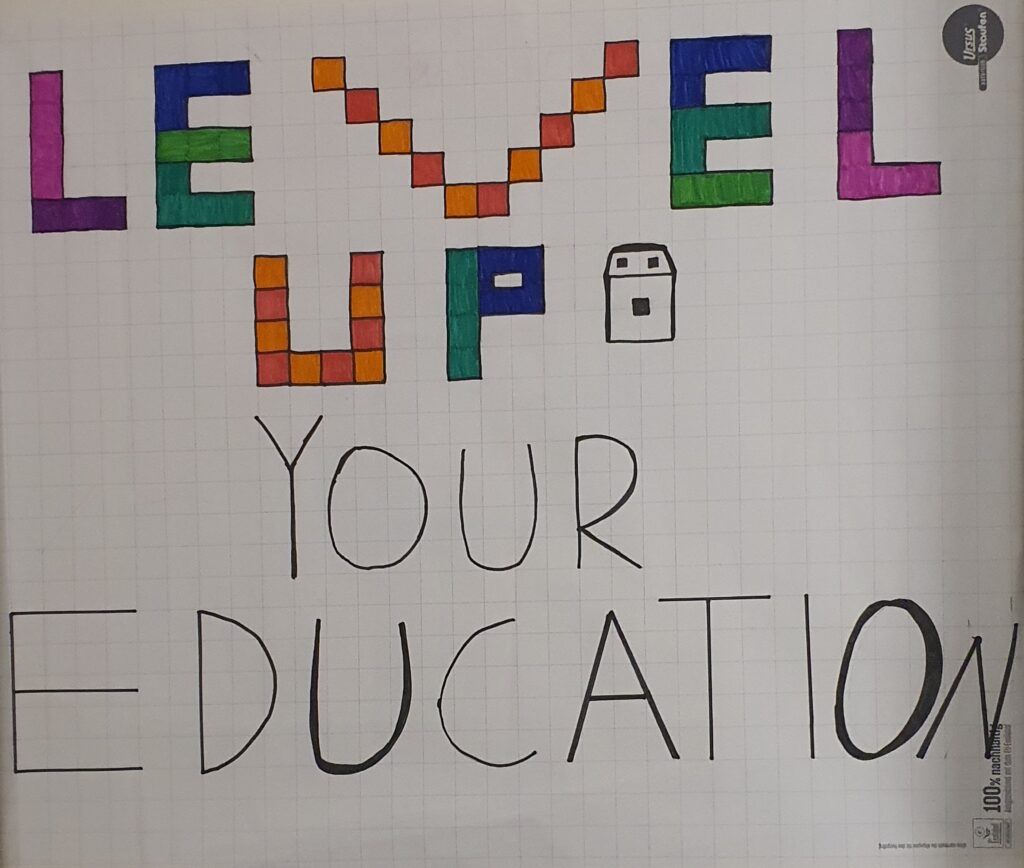 LEVEL
UP
YOUR
EDUCATION
Ursus
Staufen
100% nachhaltig